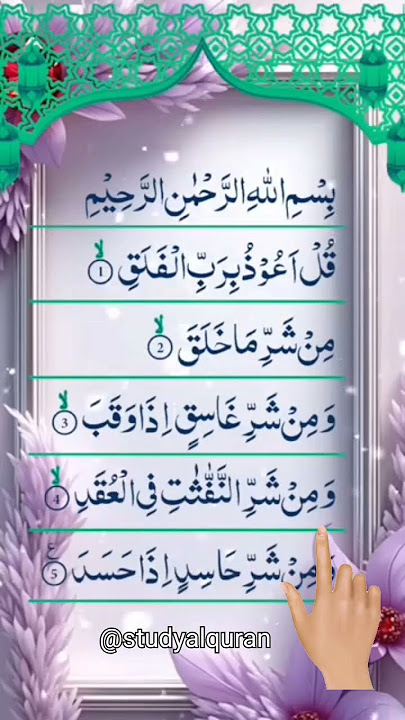 بِسْمِ اللهِ الرَّحْمٰنِ الرَّحِيْمِ
قُلْ اَعُوْذُ بِرَبِّ الْفَلَقِ ۙ 1
مِنْ شَرِّ مَا خَلَقَ ۙ 2
وَ مِنْ شَرِّ غَاسِقٍ اِذَا وَقَبَ ۙ 3
وَ مِنْ شَرِّ النَّفّٰثٰتِ فِی الْعُقَدِ ۙ 4
وَ مِنْ شَرِّ حَاسِدٍ اِذَا حَسَدَ ع 5
@studyalquran